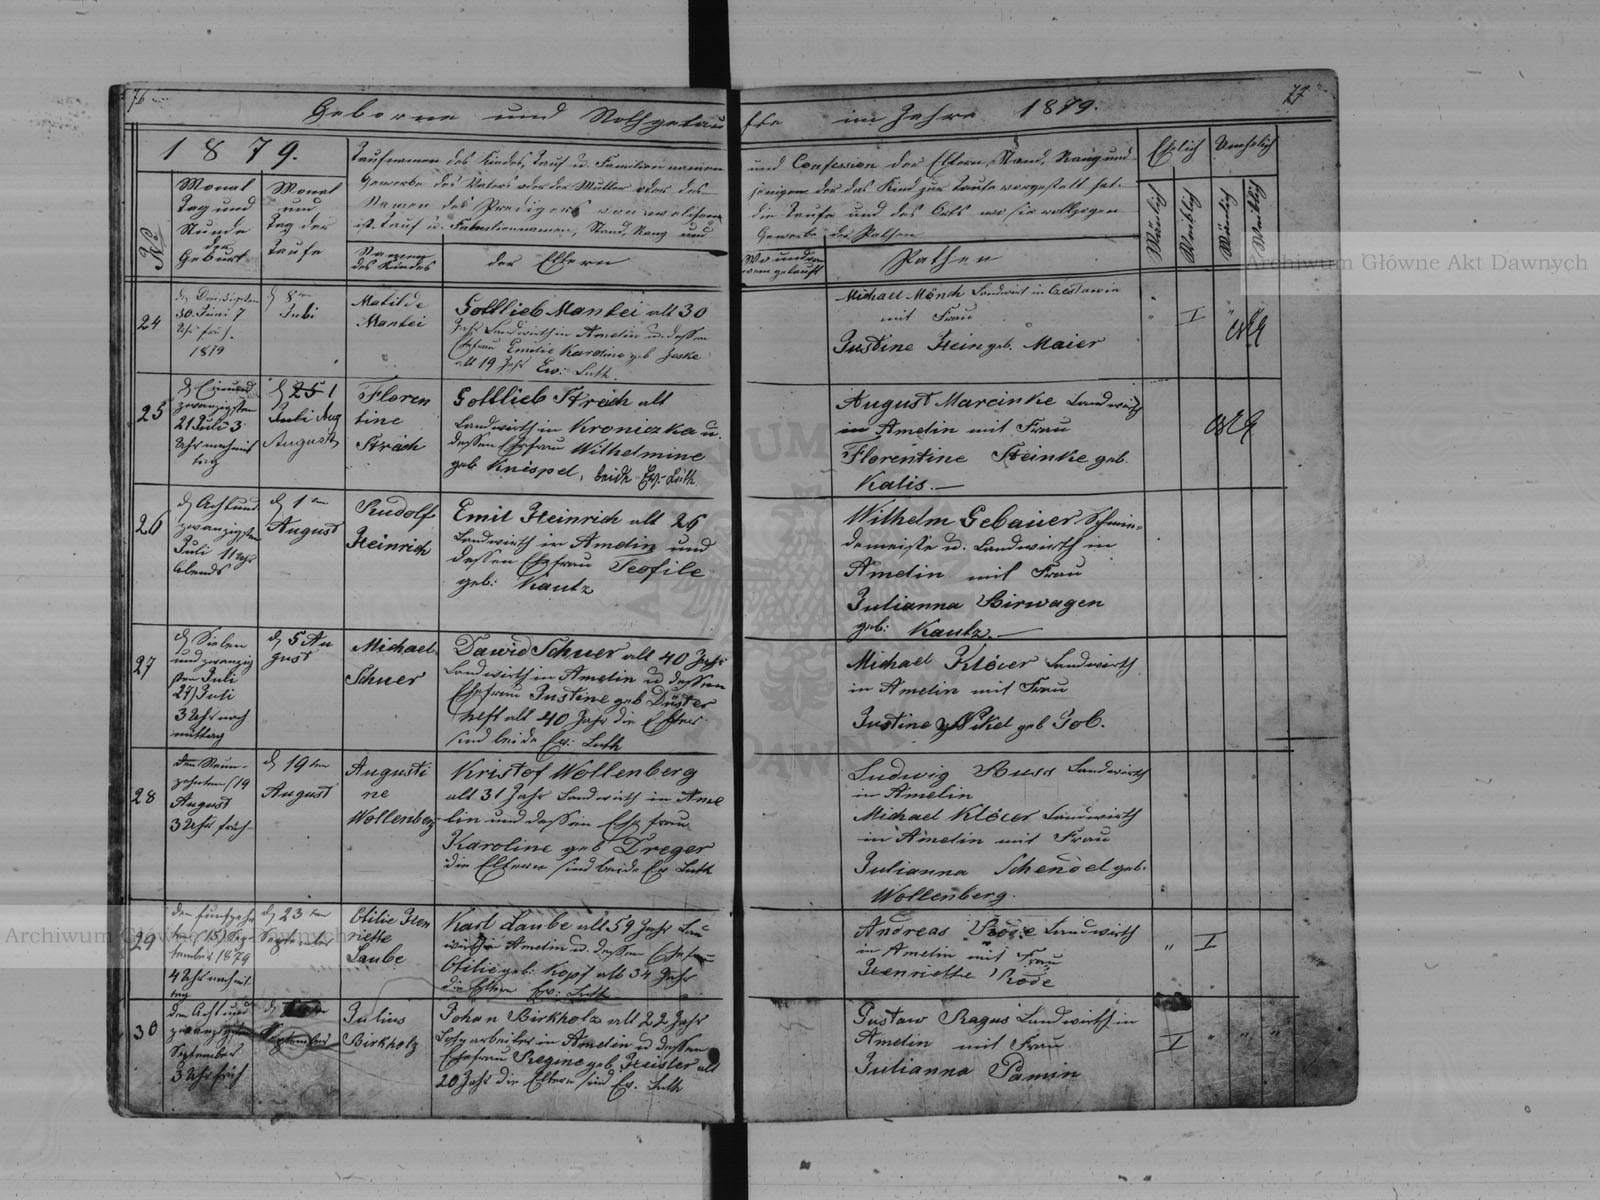 76
77
Geborne und Nothgetau
fte im Jahre 1879.
1 8 7 9.
Taufnamen des Kindes, Tauf u. Familiennamen
und Confession der Eltern, Stand, Rang und
Gewerbe des Vaters oder der Mutter oder des
jenigen der das Kind zur Taufe vorgestellt hat.
Namen des Predigers von welchem
die Taufe und des Orts wo sie vollzogen
ist. Tauf u. Familiennamen, Stand, Rang und
Gewerbe der Pathen
Ehelich
Unehelich
No
Monat
Tag und
Stunde
der
Geburt
Monat
und
Tag der
Taufe
Namen
des Kindes
der Eltern
Wo und von
wem getauft
Pathen
Männlich
Weiblich
Männlich
Weiblich
24
30. Juni 7
Uhr früh.
1879
d 8ten
Juli
Matilde
Mantei
Gottlieb Mantei alt 30
Jahr Landwirth in Amelin u. dessen
Ehefrau Emilie Karoline geb Jeske
alt 19 Jahr Ev: Luth.
Michael Mönch Landwirt in
mit Frau
Justine Hein geb. Maier
" I "
25
d Einund
zwanzigsten
21 Juli 3
Uhr nachmit
tag
d 25 1
Juli Aug
August
Floren
tine
Sträch
Gottlieb Sträch alt
Landwirth in Kroniczka u.
dessen Ehefrau Wilhelmine
geb Knispel, beide Ev.-Luth.
August Marcinke Landwirth
in Amelin mit Frau
Florentine Steinke geb.
Kalis.
26
d Achtund
zwanzigsten
Juli 11 Uhr
Abends
d 1ten
August
Rudolf
Heinrich
Emil Heinrich alt 26
Landwirth in Amelin und
dessen Ehefrau Teofile
geb: Kautz
Wilhelm Gebauer Schmie=
demeiste u. Landwirth in
Amelin mit Frau
Julianna Birwagen
geb: Kautz.
27
d Sieben
und zwanzig
sten Juli
27) Juli
3 Uhr nach
mittag
d 5 Au
gust
Michael
Schuer
Dawid Schuer alt 40 Jahr
Landwirth in Amelin u dessen
Ehefrau Justine geb Düster
heft alt 40 Jahr die Eltern
sind beide Ev: Luth
Michael Klöcer Landwirth
in Amelin mit Frau
Justine Nikel geb Job.
28
den Neun-
zehnten (19
August
3 Uhr früh
d 19ten
August
Augusti
ne
Wollenberg
Kristof Wollenberg
alt 31 Jahr Landwirth in Ame
lin und dessen Ehefrau
Karoline geb Dreger
die Eltern sind beide Ev Luth
Ludwig Buss Landwirth
in Amelin
Michael Klöcer Landwirth
in Amelin mit Frau
Julianna Schendel geb.
Wollenberg.
29
den fünfzehn
ten (15) Sep
tember 1879
4 Uhr nachmit
tag
d 23ten
September
Otilie Hen
riette
Laube
Karl Laube alt 59 Jahr Lan
wirth in Amelin u. dessen Ehefrau
Otilie geb: Kopf alt 34 Jahr
die Eltern Ev: Luth
Andreas Rode Landwirth
in Amelin mit Frau
Henriethe Rode
" I
30
den Acht und
zwanzigsten
September
3 Uhr früh
September
Julius
Birkholz
Johan Birkholz alt 22 Jahr
Lohnarbeiter in Amelin u dessen
Ehefrau Regine geb. Heisler alt
20 Jahr die Eltern sind Ev. Luth
Gustaw Ragus Landwirth in
Amelin mit Frau
Julianna Pamin
I " " "
Archiwum Główne Akt Dawnych
Archiwum Główne Akt Dawnych